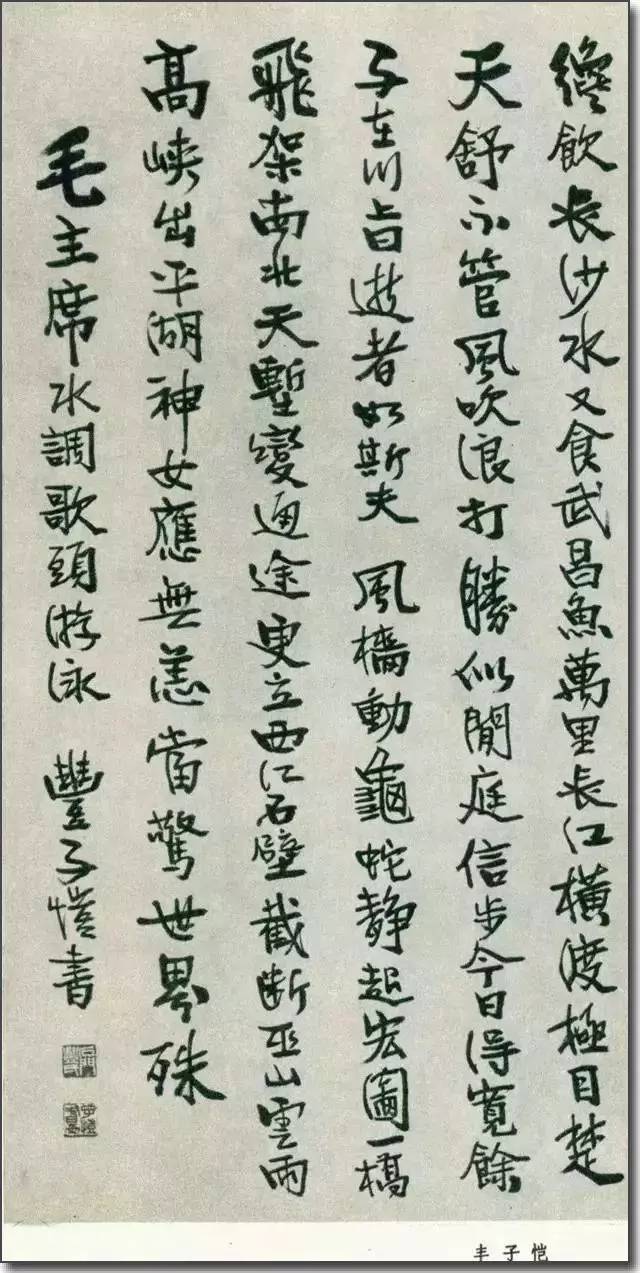 纔飲長沙水又食武昌魚萬里長江橫渡極目楚
天舒不管風吹浪打勝似閒庭信步今日得寬餘
子在川上曰逝者如斯夫風檣動龜蛇靜起宏圖一橋
飛架南北天塹變通途更立西江石壁截斷巫山雲雨
高峽出平湖神女應無恙當驚世界殊
毛主席水調歌頭游泳 豐子愷書
丰子恺